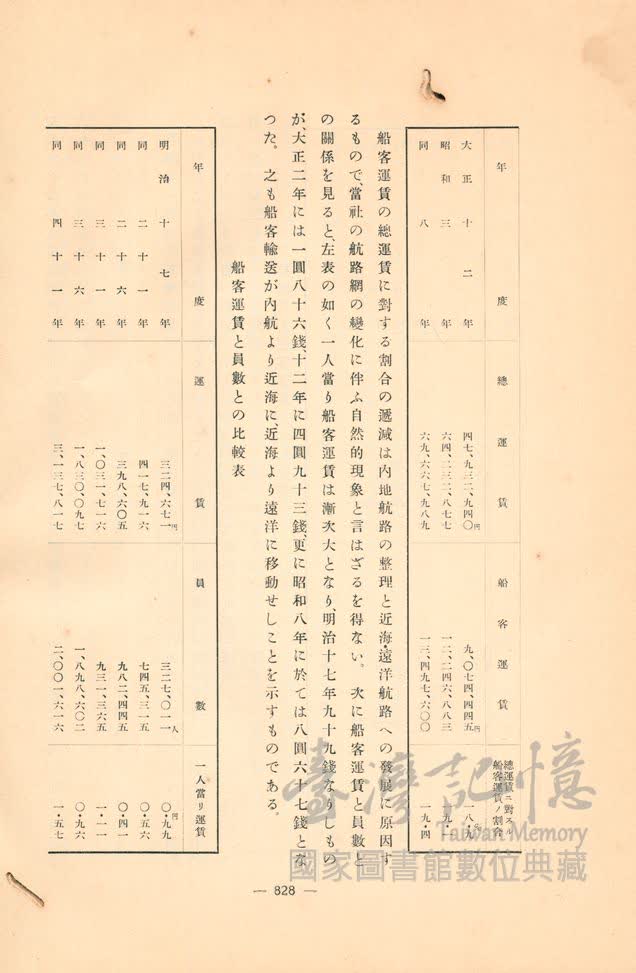 年度 總運賃 船客運賃 總運賃ニ對スル船客運賃ノ割合
大正十二年 四七、九三二、九四〇円 九、〇七四、四四五円 一八・九%
昭和三年 六四、二三二、八七七 一二、二四六、八八三 一九・一
同八年 六九、六六七、九八九 一三、四九七、六〇〇 一九・四
船客運賃の總運賃に對する割合の遞減は內地航路の整理と近海・遠洋航路への發展に原因す
るもので、當社の航路網の變化に伴ふ自然的現象と言はざるを得ない。次に船客運賃と員數と
の關係を見ると、左表の如く一人當り船客運賃は漸次大となり、明治十七年九十九錢なりしもの
が、大正二年には一圓八十六錢、十二年に四圓九十三錢、更に昭和八年に於ては八圓六十七錢とな
つた。之も船客輸送が內航より近海に、近海より遠洋に移動せしことを示すものである。
船客運賃と員數との比較表
年度 運賃 員數 一人當リ運賃
明治十七年 三二四、六七一円 三二七、〇一一人 〇・九九円
同二十一年 四一七、九一六 七四五、三一五 〇・五六
同二十六年 三九八、六〇五 九八二、四四五 〇・四一
同三十一年 一、〇三一、七一六 九三一、三六五 一・一一
同三十六年 一、八三〇、〇九七 一、八九八、六〇二 〇・九六
同四十一年 三、一三七、八一七 二、〇〇一、六一六 一・五七
— 828 —
臺灣記憶
Taiwan Memory
國家圖書館數位典藏